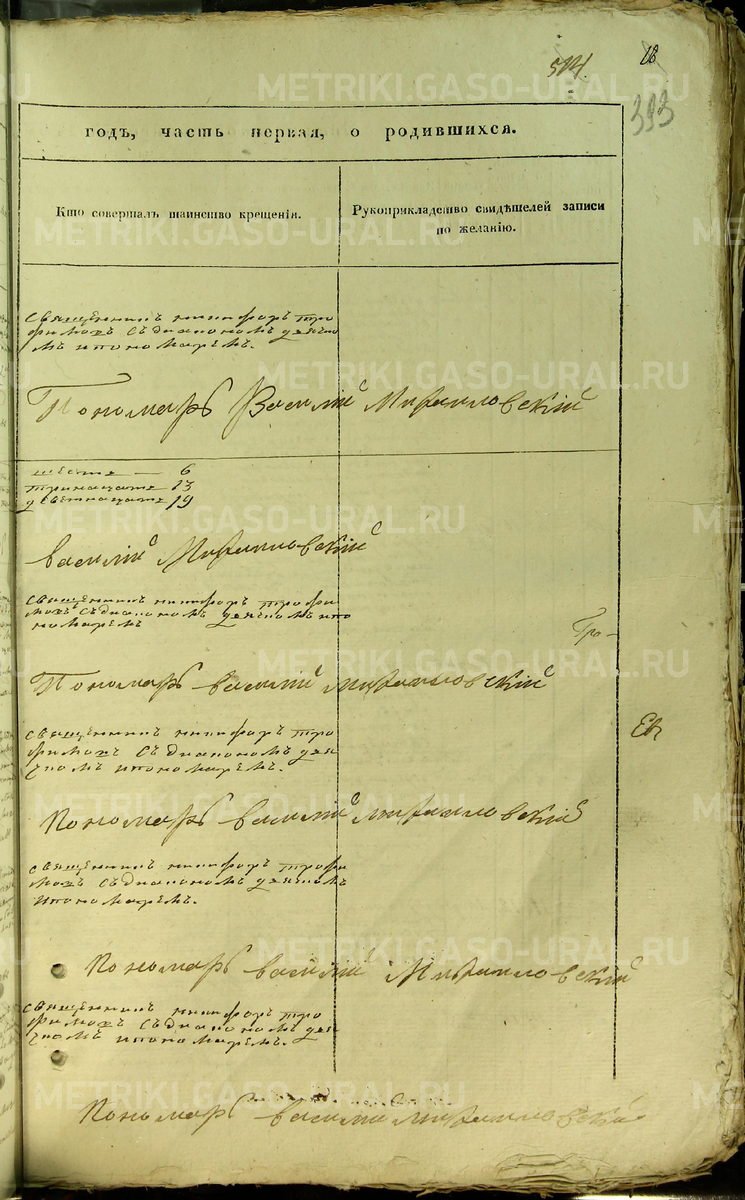 514.
393
годъ, часть первая, о родившихся.
Кто совершалъ таинство крещенія.
Рукоприкладство свидѣтелей записи
по желанію.
священникъ никифоръ тро
фимовъ съ діакономъ дьячко
мъ ипономаремъ.
Пономарь Василій Михайловскій
шесть — 6
тринацать 13
девятнацать 19
Василій Михайловскій
священникъ никифоръ трофи
мовъ съ діакономъ дьячкомъ ипо
номаремъ
Тр-
Пономарь василій михайловскій
священникъ никифоръ тро
фимовъ съ діакономъ дья
чкомъ ипономаремъ.
Пономарь василій михайловскій
священникъ никифоръ трофи
мовъ съ діакономъ дьячкомъ
ипономаремъ.
Пономарь василій Михайловскій
священникъ никифоръ тро
фимовъ съ діакономъ дья
чкомъ ипономаремъ.
Пономарь василій михайловскій
METRIKI.GASO-URAL.RU